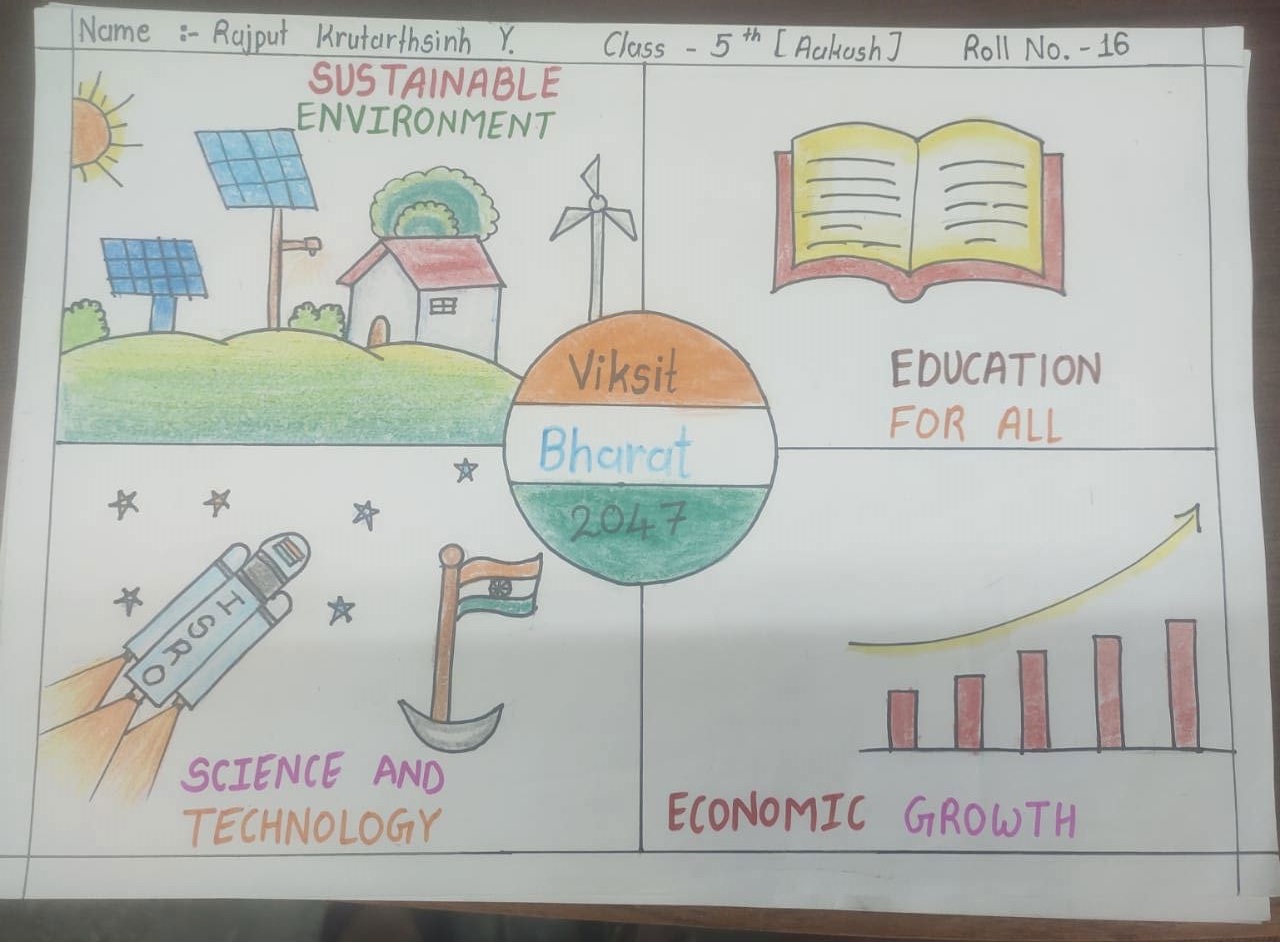 Name :- Rajput Krutarthsinh Y. Class - 5th [Aakash] Roll No. - 16
SUSTAINABLE
ENVIRONMENT
EDUCATION
FOR ALL
Viksit
Bharat
2047
ISRO
SCIENCE AND
TECHNOLOGY
ECONOMIC GROWTH